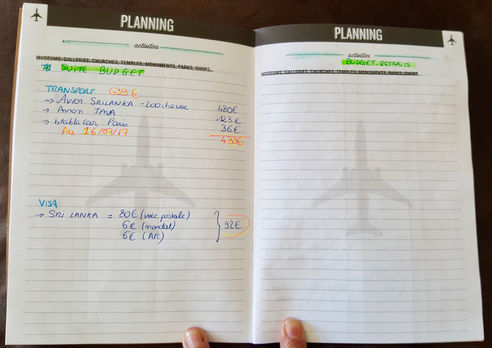 PLANNING
activities
MUSEUMS, GALLERIES, CHURCHES, TEMPLES, MONUMENTS, PARKS, SHOPS...
SUITE BUDGET
TRANSPORT
→ Avion SRI LANKA
→ Avion JAVA
→ blablacar Paris 36€
Au 16/07/17
VISA
→ SRI LANKA = 80€ (voie postale)
6€ (mandat) 92€
6€ (AR)
PLANNING
activities
BUDGET RETRAITS
MUSEUMS, GALLERIES, CHURCHES, TEMPLES, MONUMENTS, PARKS, SHOPS